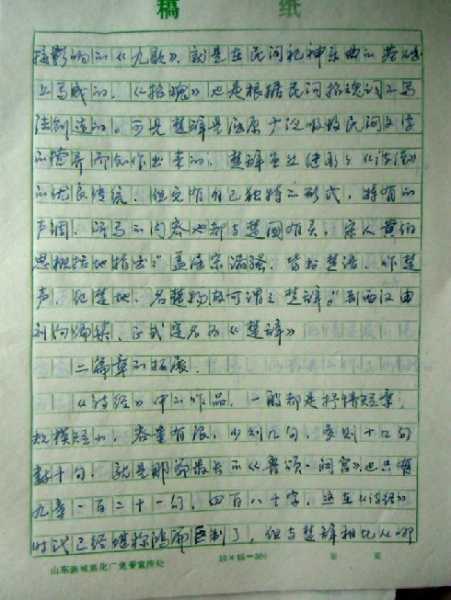 稿 纸
接影响的《九歌》，就是在民间祀神乐曲的基础
上写成的。《招魂》也是根据民间招魂词的写
法创造的。可见楚辞是屈原广泛吸收民间文学
的营养而创作出来的。楚辞虽然继承了《诗经》
的优良传统，但它有自己独特的形式，特有的
声调，所写的内容也都与楚国有关，宋人黄伯
思概括地指出："盖屈宋诸骚，皆书楚语，作楚
声，纪楚地，名楚物，故可谓之楚辞。"到西汉由
刘向编辑，正式定名为《楚辞》
二 篇章的拓展。
《诗经》中的作品，一般都是抒情短章，
规模短小，容量有限，少则几句，多则十几句
数十句，就是那篇最长的《鲁颂·閟宫》也只有
九章一百二十一句，四百八十字，这在《诗经》
时代已经堪称鸿篇巨制了，但与楚辞相比从哪